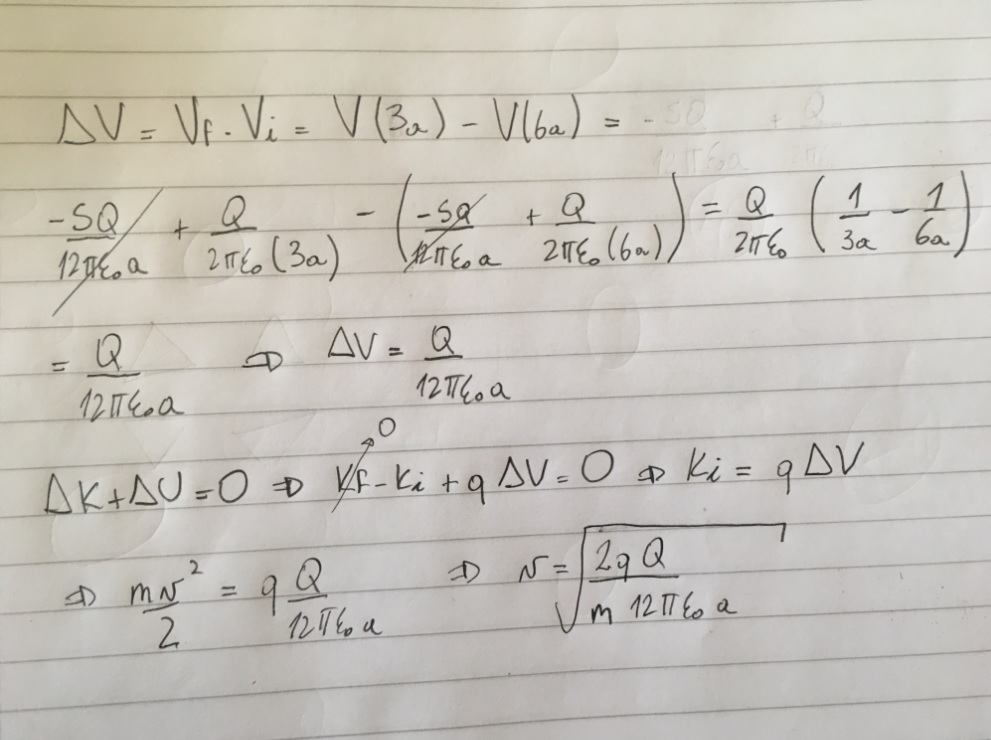 ΔV = Vf - Vi = V(3a) - V(6a) = -5Q/12πε₀a + Q
-5Q/12πε₀a + Q/2πε₀(3a) - (-5Q/12πε₀a + Q/2πε₀(6a)) = Q/2πε₀ (1/3a - 1/6a)
= Q/12πε₀a ⇒ ΔV = Q/12πε₀a
ΔK + ΔU = 0 ⇒ Kf↗0 - Ki + qΔV = 0 ⇒ Ki = qΔV
⇒ mv²/2 = q Q/12πε₀a ⇒ v = √(2qQ/m 12πε₀a)